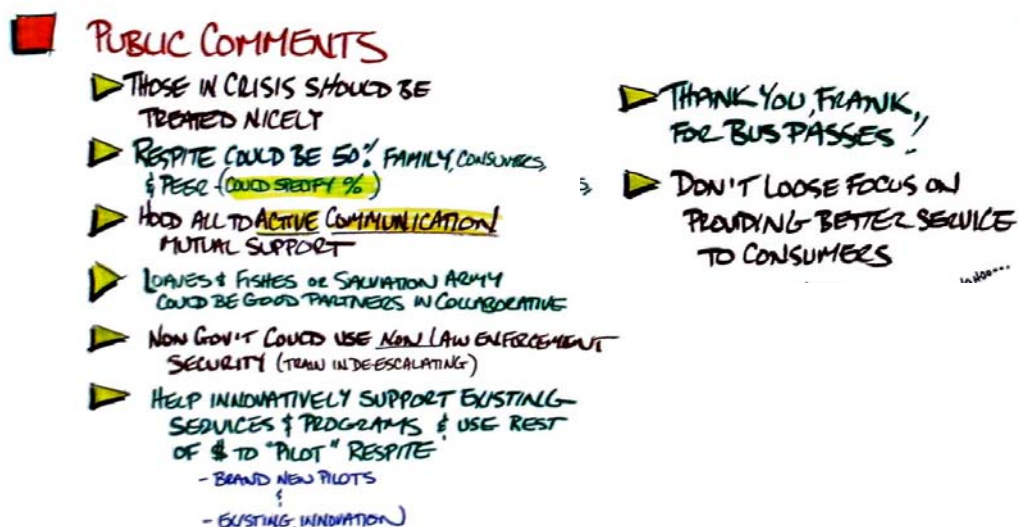 PUBLIC COMMENTS
THOSE IN CRISIS SHOULD BE
TREATED NICELY
RESPITE COULD BE 50% FAMILY, CONSUMERS,
& PEER - (COULD SPECIFY %)
HOLD ALL TO ACTIVE COMMUNICATION
MUTUAL SUPPORT
LOAVES & FISHES OR SALVATION ARMY
COULD BE GOOD PARTNERS IN COLLABORATIVE
NON GOV'T COULD USE NON LAW ENFORCEMENT
SECURITY (TRAIN IN DE-ESCALATING)
HELP INNOVATIVELY SUPPORT EXISTING
SERVICES & PROGRAMS & USE REST
OF $ TO "PILOT" RESPITE
- BRAND NEW PILOTS
&
- EXISTING INNOVATION
THANK YOU, FRANK,
FOR BUS PASSES!
DON'T LOOSE FOCUS ON
PROVIDING BETTER SERVICE
TO CONSUMERS